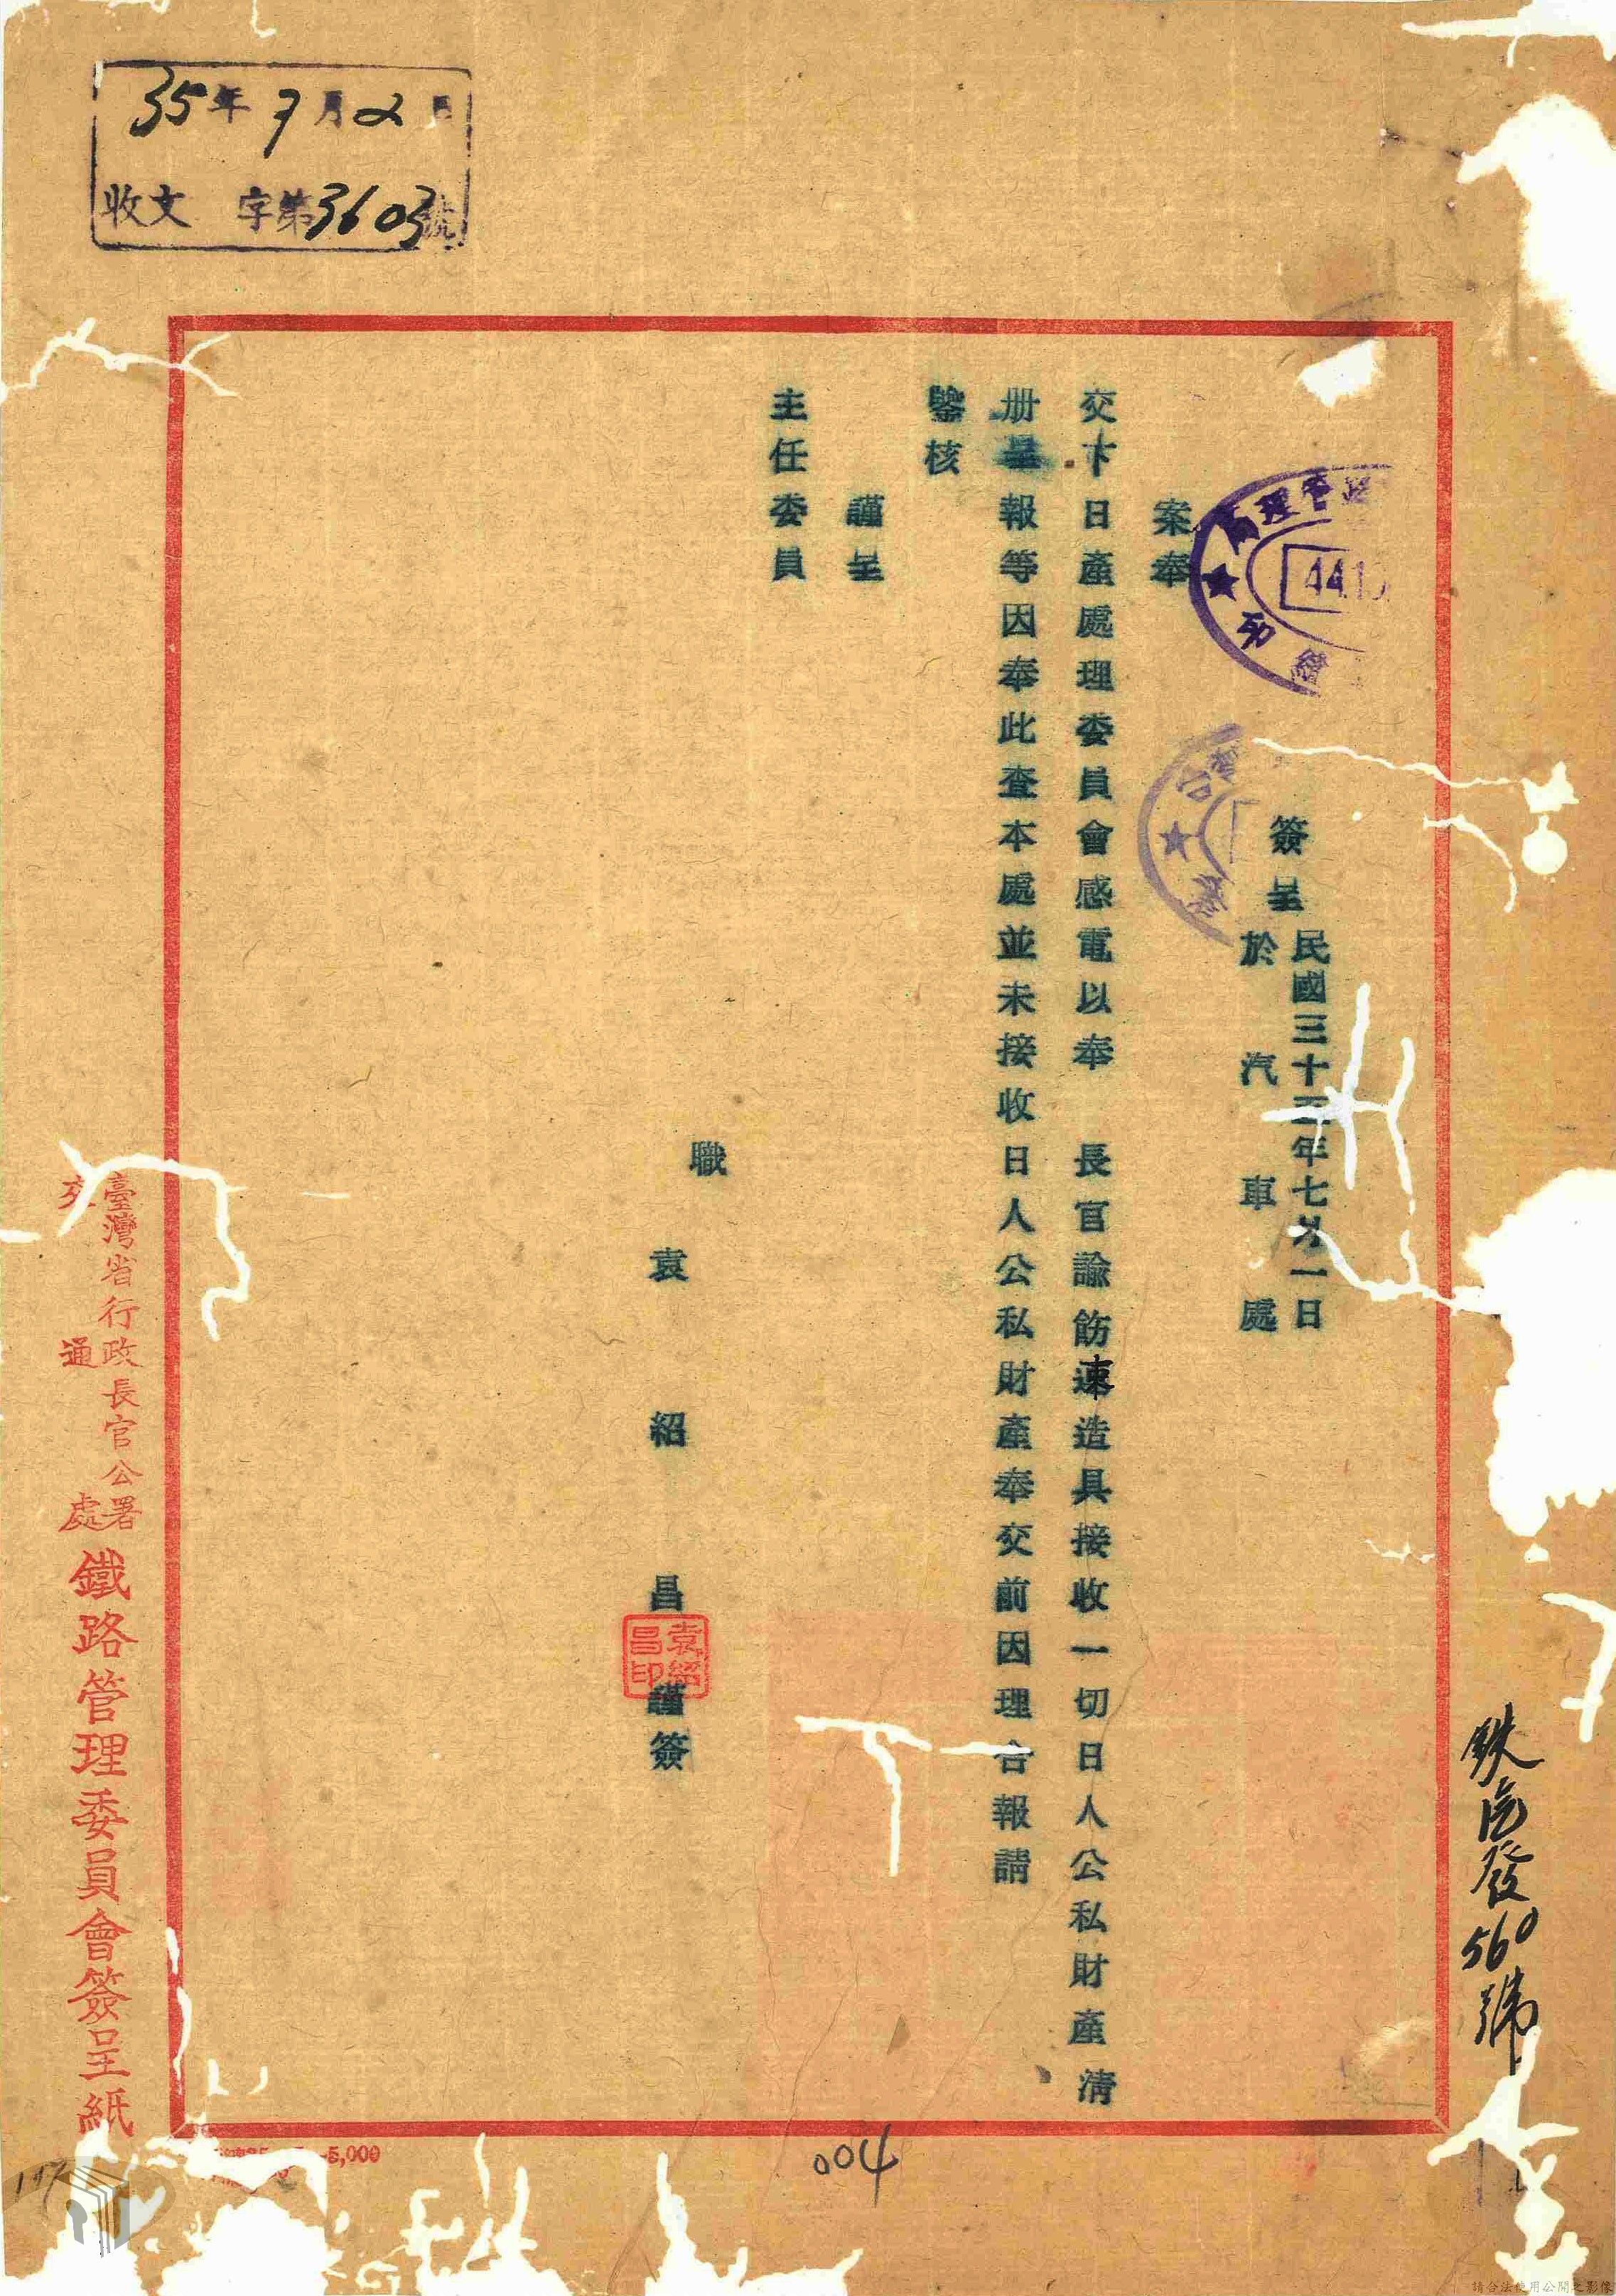 35年7月2日
收文 字第3603號
鉄汽發560號
簽呈 民國三十五年七月一日
於汽車處
案奉
交下日產處理委員會感電以奉 長官諭飭速造具接收一切日人公私財產清
册呈報等因奉此查本處並未接收日人公私財產奉交前因理合報請
鑒核
謹呈
主任委員
職
袁紹昌謹簽
袁紹昌印
臺灣省行政長官公署
交通處
鐵路管理委員會簽呈紙
局理管路
441
5,000
004
請合法使用公開之影像